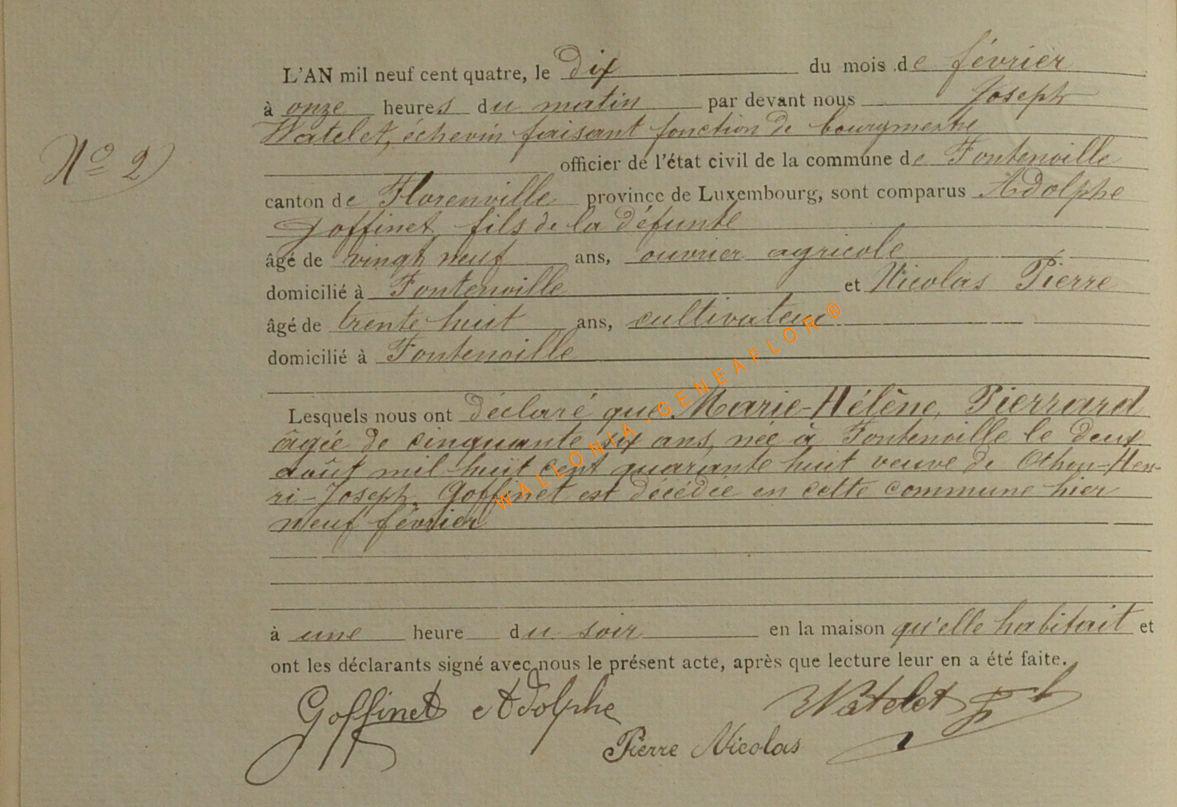 L'AN mil neuf cent quatre, le dix du mois de février
à onze heures du matin par devant nous Joseph
Watelet, échevin faisant fonction de bourgmestre
N° 2)
officier de l'état civil de la commune de Fontenoille
canton de Florenville province de Luxembourg, sont comparus Adolphe
Goffinet, fils de la défunte
âgé de vingt neuf ans, ouvrier agricole
domicilié à Fontenoille et Nicolas Pierre
âgé de trente huit ans, cultivateur
domicilié à Fontenoille
Lesquels nous ont déclaré que Marie-Hélène Pierrard
âgée de cinquante six ans, née à Fontenoille le deux
août mil huit cent quarante huit veuve de Othon-Hen-
ri-Joseph Goffinet est décédée en cette commune hier
neuf février
à une heure du soir en la maison qu'elle habitait et
ont les déclarants signé avec nous le présent acte, après que lecture leur en a été faite.
Goffinet Adolphe Watelet
Pierre Nicolas
WALLONIA-GENEAFLOR®